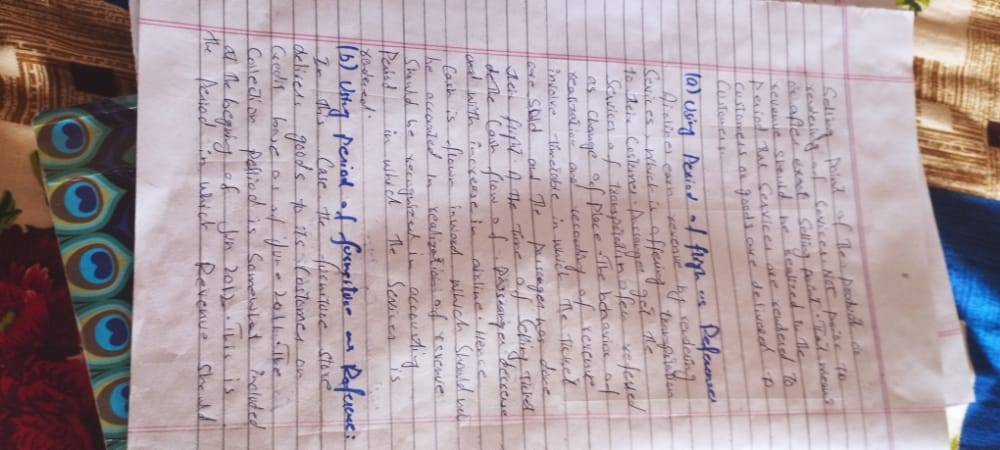 Selling Point of the product or
rendering of Services Not prior to
is after exact Selling point. That means
revenue should be realized in the
period the Services are rendered to
customers or goods are delivered
Customers.
(a) Using Period of as Reference
Airlines earn revenue by rendering
Services which is offering transpiration
to their Costumer. get the
Services of transpiration often refered
as change of place. The behavior of
realization and recording of revenue
involve in which the ticket
are sold and the passenger have done
their flight. At the time of Selling ticket
the Cash flow of passenger decrease
and with increase in airline. Hence
Cash is flowing inward which should not
be accounted in realization of revenue
Should be recognized in accounting
Period in which the Services is
rendered.
(b) Using Period of furniture as Reference:
In this Case the furniture store
delivers goods to its Customers on
Goods have as of June 2011. The
Collection period is Somewhat included
at the begining of Jan 2012. This is
the Period in which Revenue Should